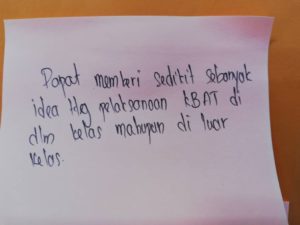 Dapat memberi sedikit sebanyak
idea tkg pelaksanaan KBAT di
dlm kelas mahupun di luar
kelas.